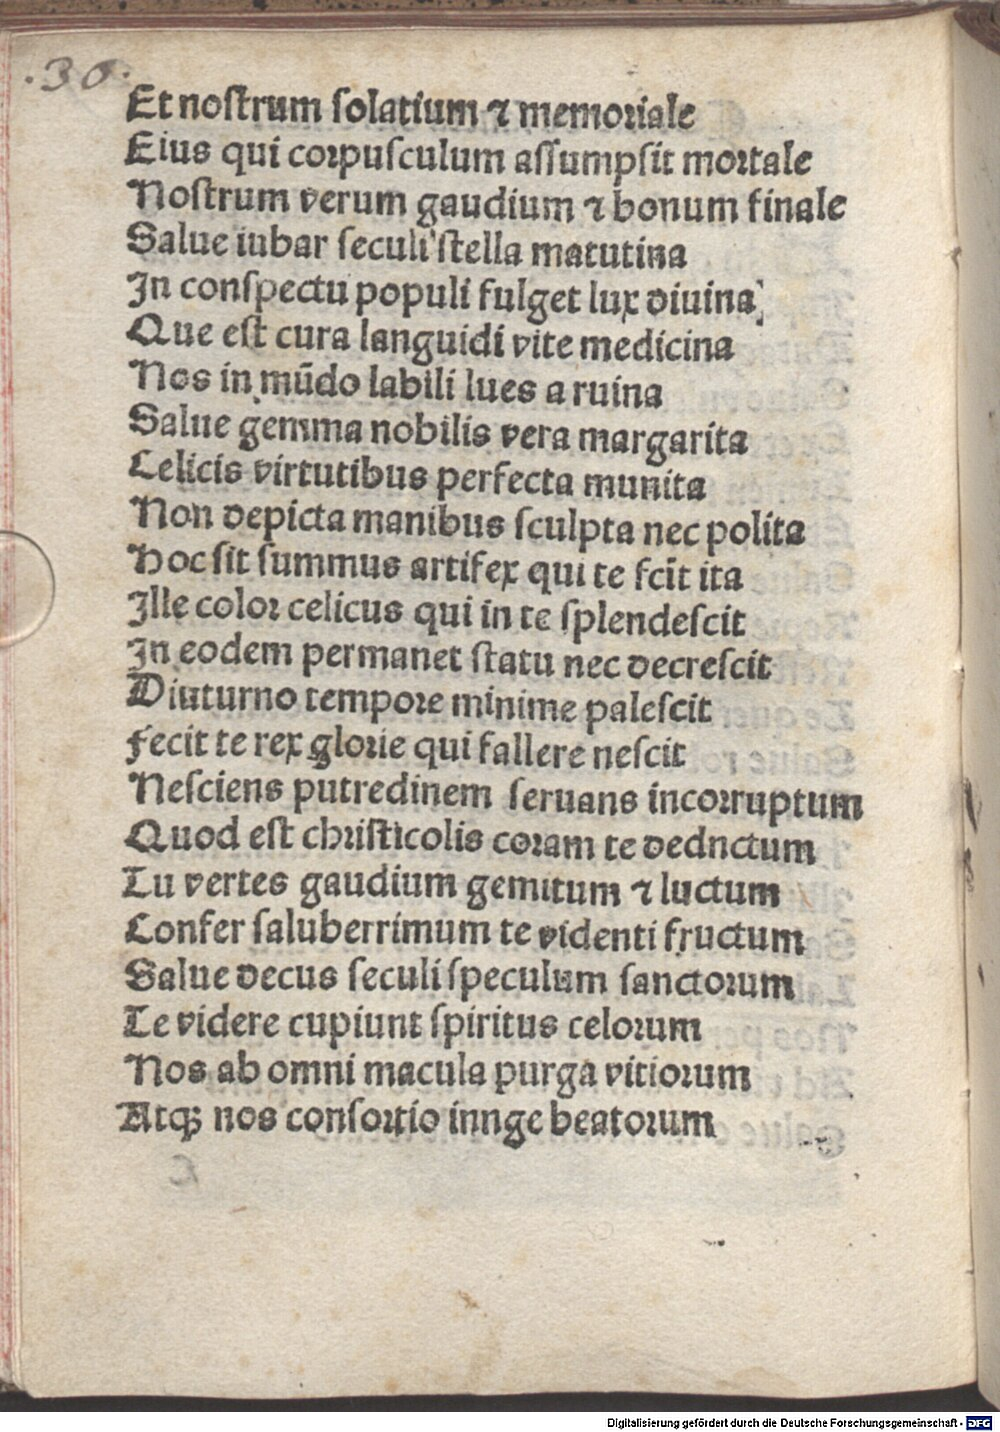 .30.
Et noſtrum ſolatium ⁊ memoriale
Eius qui corpuſculum aſſumpſit mortale
Noſtrum verum gaudium ⁊ bonum finale
Salue iubar ſeculi ſtella matutina
In conſpectu populi fulget lux diuina
Que eſt cura languidi vite medicina
Nos in mūdo labili lues a ruina
Salue gemma nobilis vera margarita
Celicis virtutibus perfecta munita
Non depicta manibus ſculpta nec polita
Hoc ſit ſummus artifex qui te fcīt ita
Ille color celicus qui in te ſplendeſcit
In eodem permanet ſtatu nec decreſcit
Diuturno tempore minime paleſcit
Fecit te rex glorie qui fallere neſcit
Neſciens putredinem ſeruans incorruptum
Quod eſt chriſticolis coram te dednctum
Tu vertes gaudium gemitum ⁊ luctum
Confer ſaluberrimum te videnti fructum
Salue decus ſeculi ſpeculum ſanctorum
Te videre cupiunt ſpiritus celorum
Nos ab omni macula purga vitiorum
Atqꝫ nos conſortio innge beatorum
Digitalisierung gefördert durch die Deutsche Forschungsgemeinschaft - DFG